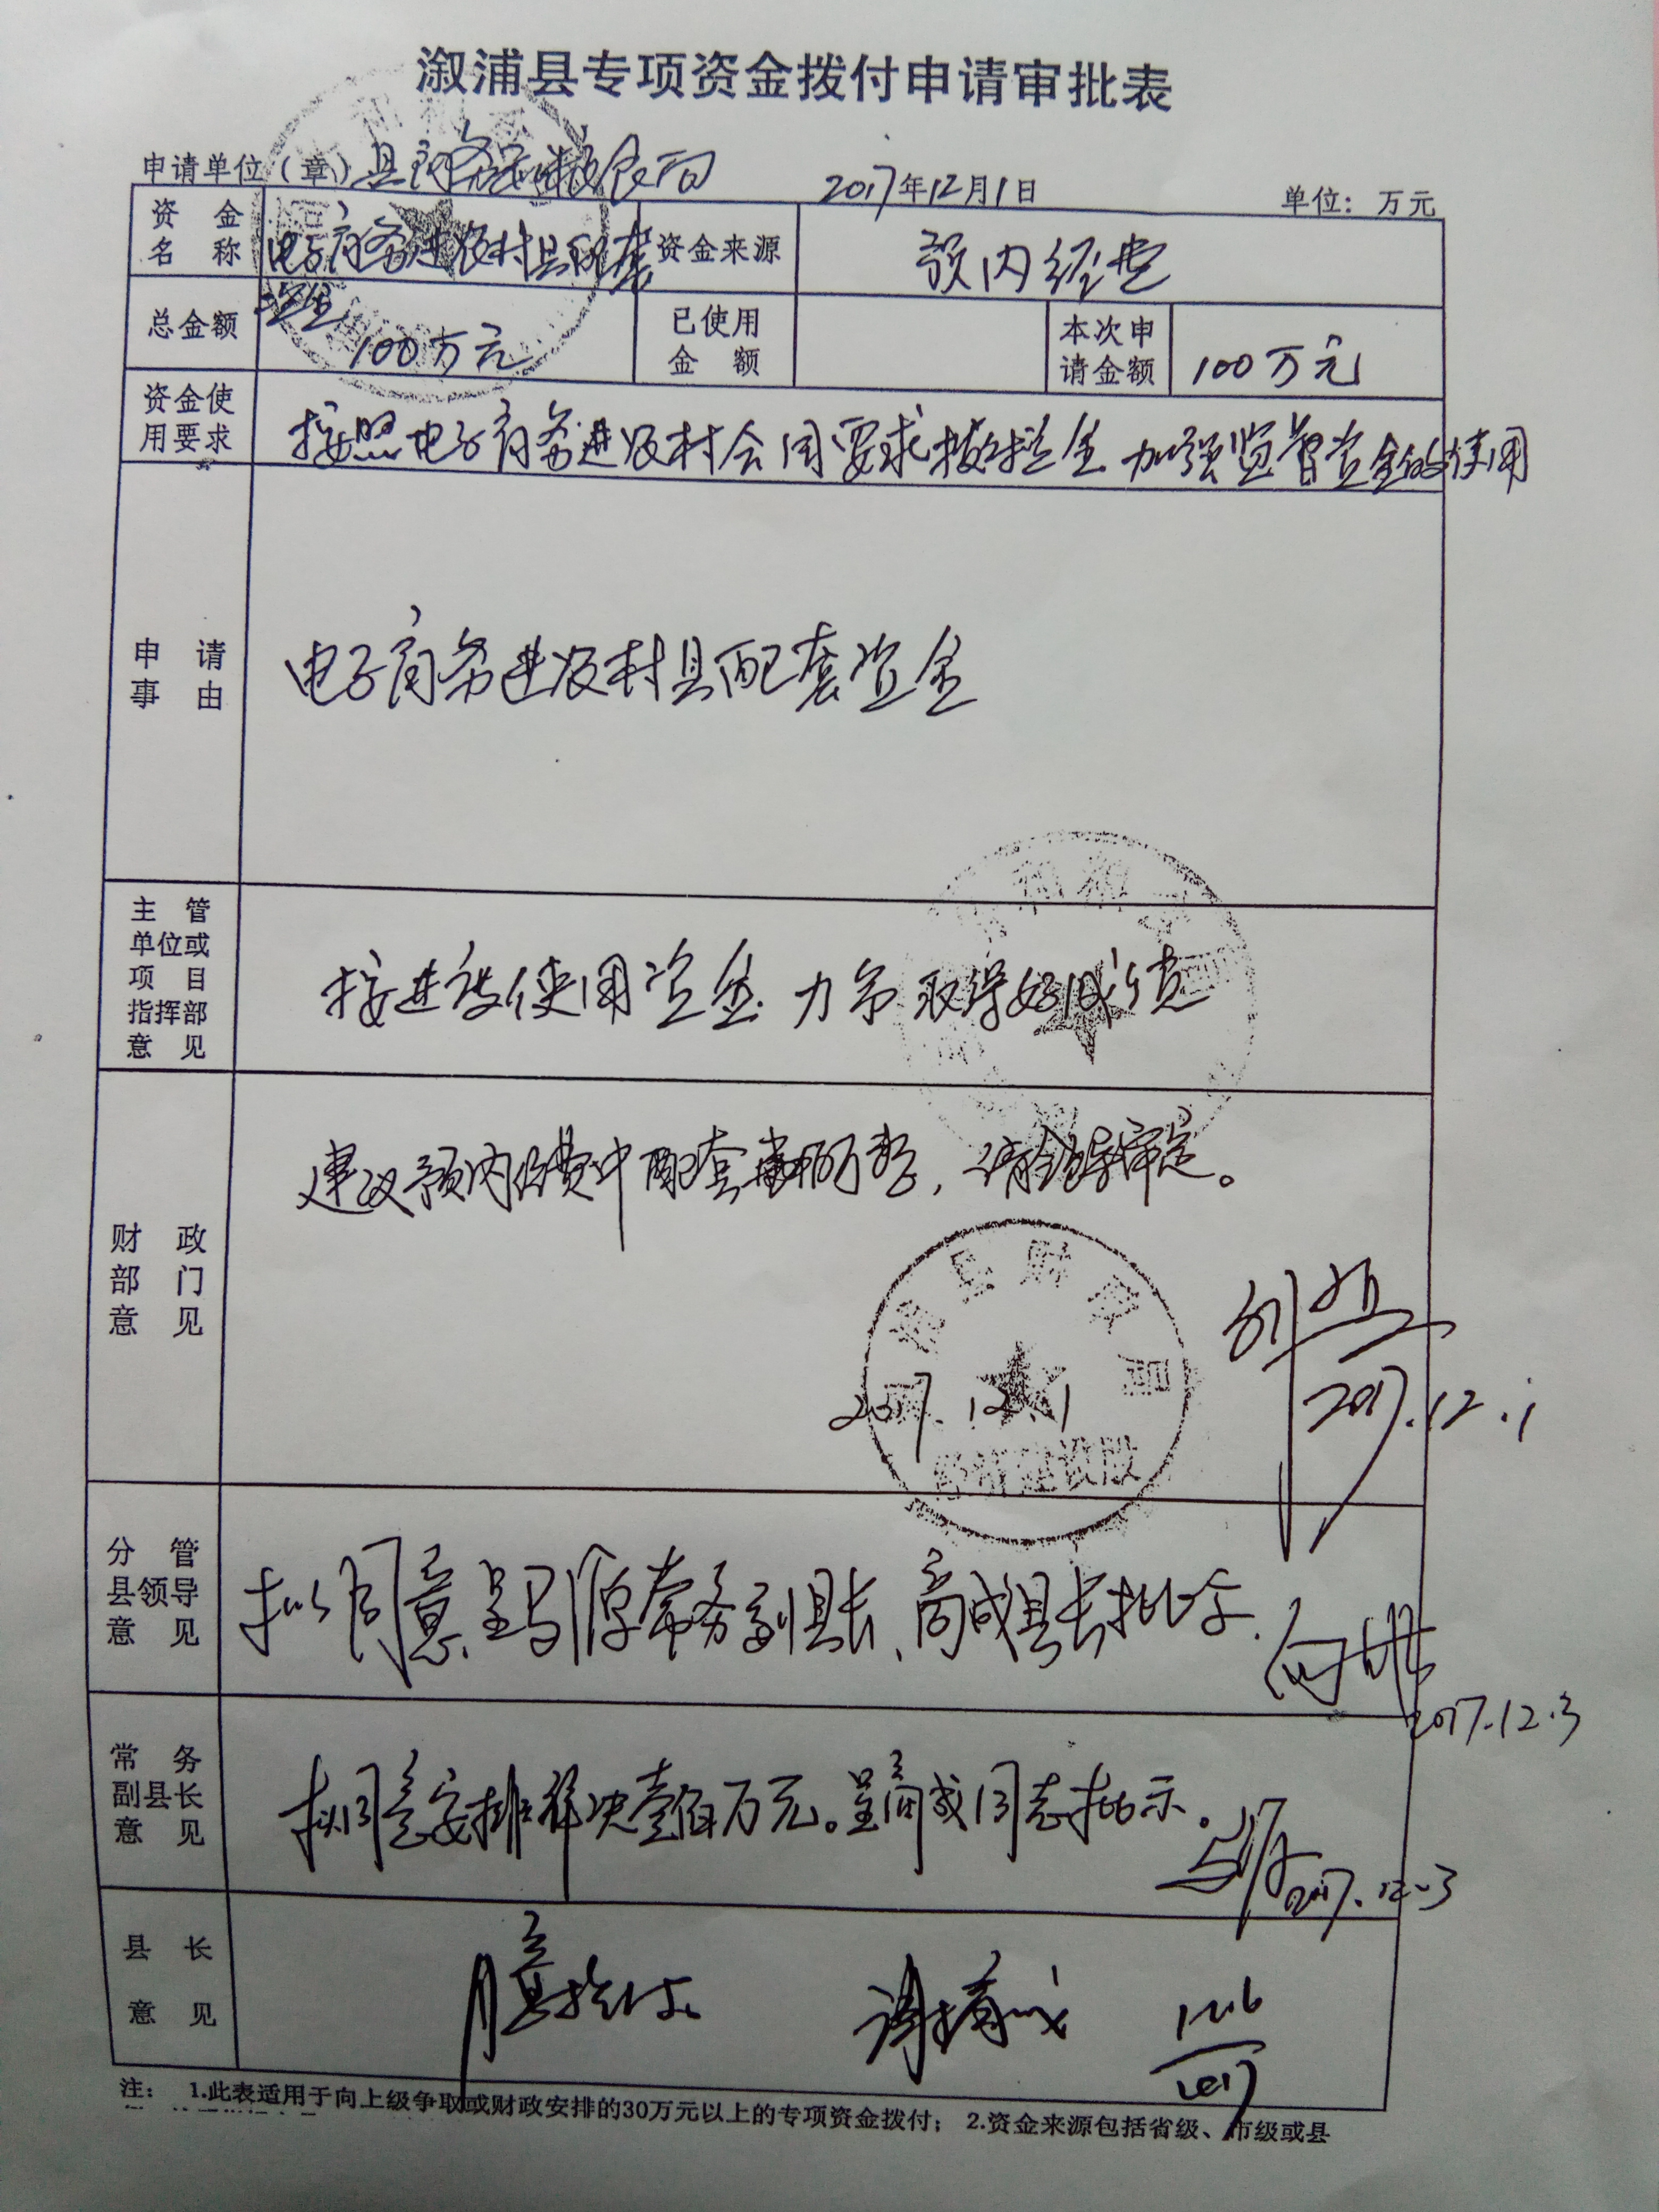 溆浦县专项资金拨付申请审批表
申请单位（章）县商务和粮食局 2017年12月1日 单位：万元
资金名称 电子商务进农村县配套资金 资金来源 预内经费
总金额 100万元 已使用金额 本次申请金额 100万元
资金使用要求 按照电子商务进农村合同要求拨付资金 加强监督资金的使用
申请事由 电子商务进农村县配套资金
主管单位或项目指挥部意见 按进度使用资金 力争取得好成绩
财政部门意见 建议预内经费中配套壹佰万元，请领导审定。
县财政局
2017.12.1
经济建设股
2017.12.1
分管县领导意见 拟同意，呈马源常务副县长、商成县长批示.
2017.12.3
常务副县长意见 拟同意安排解决壹佰万元。呈商成同志批示。
马源 2017.12.3
县长意见 同意拨付
12.6
2017
注： 1.此表适用于向上级争取或财政安排的30万元以上的专项资金拨付； 2.资金来源包括省级、市级或县